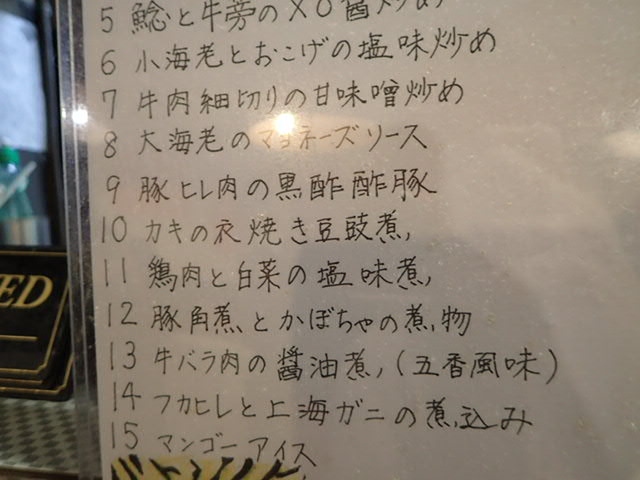 5 鯰と牛蒡のXO醤炒め
6 小海老とおこげの塩味炒め
7 牛肉細切りの甘味噌炒め
8 大海老のマヨネーズソース
9 豚ヒレ肉の黒酢酢豚
10 カキの衣焼き豆豉煮
11 鶏肉と白菜の塩味煮
12 豚角煮とかぼちゃの煮物
13 牛バラ肉の醤油煮(五香風味)
14 フカヒレと上海ガニの煮込み
15 マンゴーアイス
ED